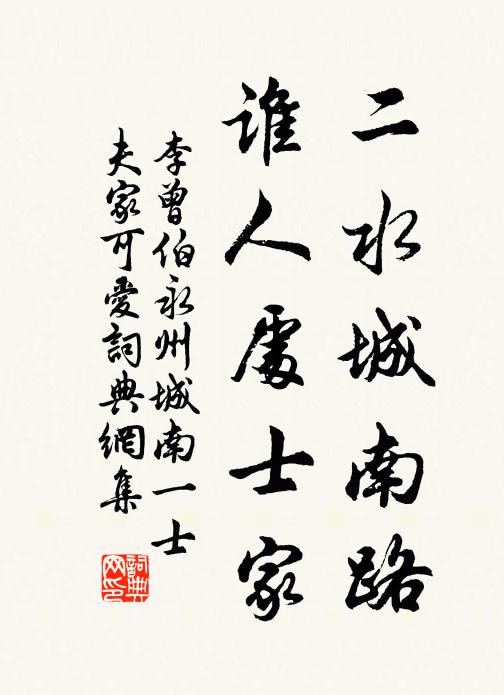 二水城南路
誰人處士家
李曾伯永州城南一士
夫家可愛詞典網集
詞典
网印